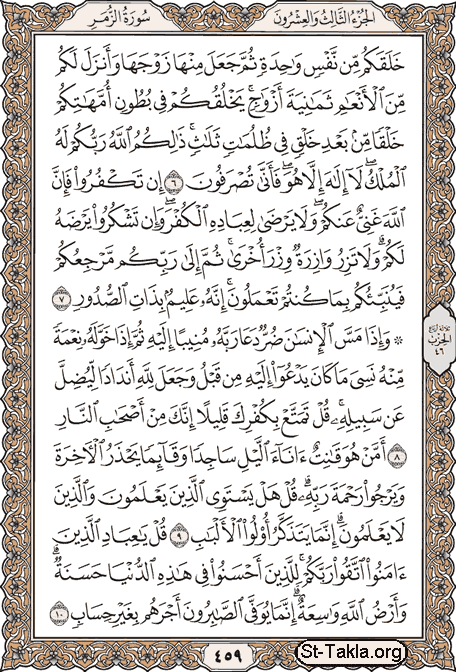 الجزء الثالث والعشرون
سورة الزمر
خَلَقَكُم مِّن نَّفْسٍ وَاحِدَةٍ ثُمَّ جَعَلَ مِنْهَا زَوْجَهَا وَأَنزَلَ لَكُم
مِّنَ ٱلْأَنْعَٰمِ ثَمَٰنِيَةَ أَزْوَٰجٍۚ يَخْلُقُكُمْ فِي بُطُونِ أُمَّهَٰتِكُمْ
خَلْقًا مِّنۢ بَعْدِ خَلْقٍ فِي ظُلُمَٰتٍ ثَلَٰثٍۚ ذَٰلِكُمُ ٱللَّهُ رَبُّكُمْ لَهُ
ٱلْمُلْكُۖ لَآ إِلَٰهَ إِلَّا هُوَۖ فَأَنَّىٰ تُصْرَفُونَ ٦ إِن تَكْفُرُوا۟ فَإِنَّ
ٱللَّهَ غَنِيٌّ عَنكُمْۖ وَلَا يَرْضَىٰ لِعِبَادِهِ ٱلْكُفْرَۖ وَإِن تَشْكُرُوا۟ يَرْضَهُ
لَكُمْۗ وَلَا تَزِرُ وَازِرَةٌ وِزْرَ أُخْرَىٰۚ ثُمَّ إِلَىٰ رَبِّكُم مَّرْجِعُكُمْ
فَيُنَبِّئُكُم بِمَا كُنتُمْ تَعْمَلُونَۚ إِنَّهُۥ عَلِيمٌۢ بِذَاتِ ٱلصُّدُورِ ٧
۞ وَإِذَا مَسَّ ٱلْإِنسَٰنَ ضُرٌّ دَعَا رَبَّهُۥ مُنِيبًا إِلَيْهِ ثُمَّ إِذَا خَوَّلَهُۥ نِعْمَةً
مِّنْهُ نَسِيَ مَا كَانَ يَدْعُوٓا۟ إِلَيْهِ مِن قَبْلُ وَجَعَلَ لِلَّهِ أَندَادًا لِّيُضِلَّ
عَن سَبِيلِهِۦۚ قُلْ تَمَتَّعْ بِكُفْرِكَ قَلِيلًا إِنَّكَ مِنْ أَصْحَٰبِ ٱلنَّارِ
٨ أَمَّنْ هُوَ قَٰنِتٌ ءَانَآءَ ٱلَّيْلِ سَاجِدًا وَقَآئِمًا يَحْذَرُ ٱلْأٓخِرَةَ
وَيَرْجُوا۟ رَحْمَةَ رَبِّهِۦۗ قُلْ هَلْ يَسْتَوِي ٱلَّذِينَ يَعْلَمُونَ وَٱلَّذِينَ
لَا يَعْلَمُونَۗ إِنَّمَا يَتَذَكَّرُ أُو۟لُوا۟ ٱلْأَلْبَٰبِ ٩ قُلْ يَٰعِبَادِ ٱلَّذِينَ
ءَامَنُوا۟ ٱتَّقُوا۟ رَبَّكُمْۚ لِلَّذِينَ أَحْسَنُوا۟ فِي هَٰذِهِ ٱلدُّنْيَا حَسَنَةٌۗ
وَأَرْضُ ٱللَّهِ وَٰسِعَةٌۗ إِنَّمَا يُوَفَّى ٱلصَّٰبِرُونَ أَجْرَهُم بِغَيْرِ حِسَابٍ ١٠
الحزب
٤٦
٤٥٩
St-Takla.org